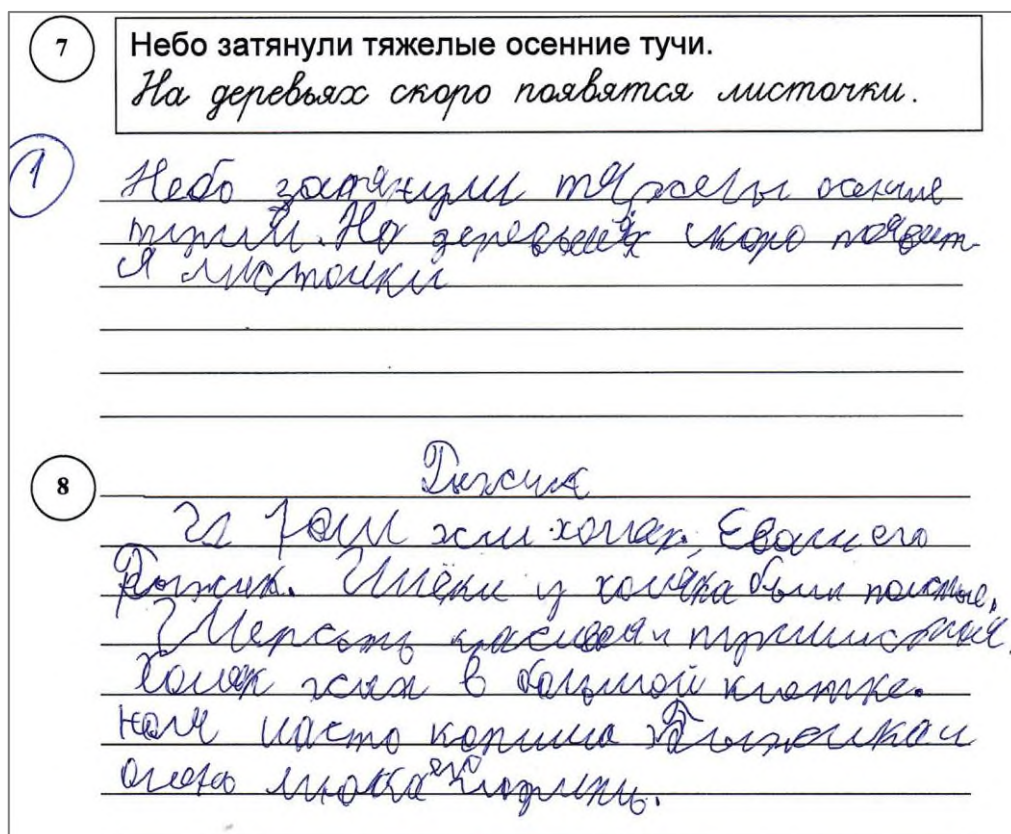 7
Небо затянули тяжелые осенние тучи.
На деревьях скоро появятся листочки.
1
Небо затянули тяжелы осение
тучи. На деревьях скоро появит-
я листочки
8
Рыжик
У жил хомяк, Звали его
Рыжик. Щёки у хомяка были толстые.
Шерсть красивая пушистая.
Хомяк жил в большой клетке.
часто кормила
его